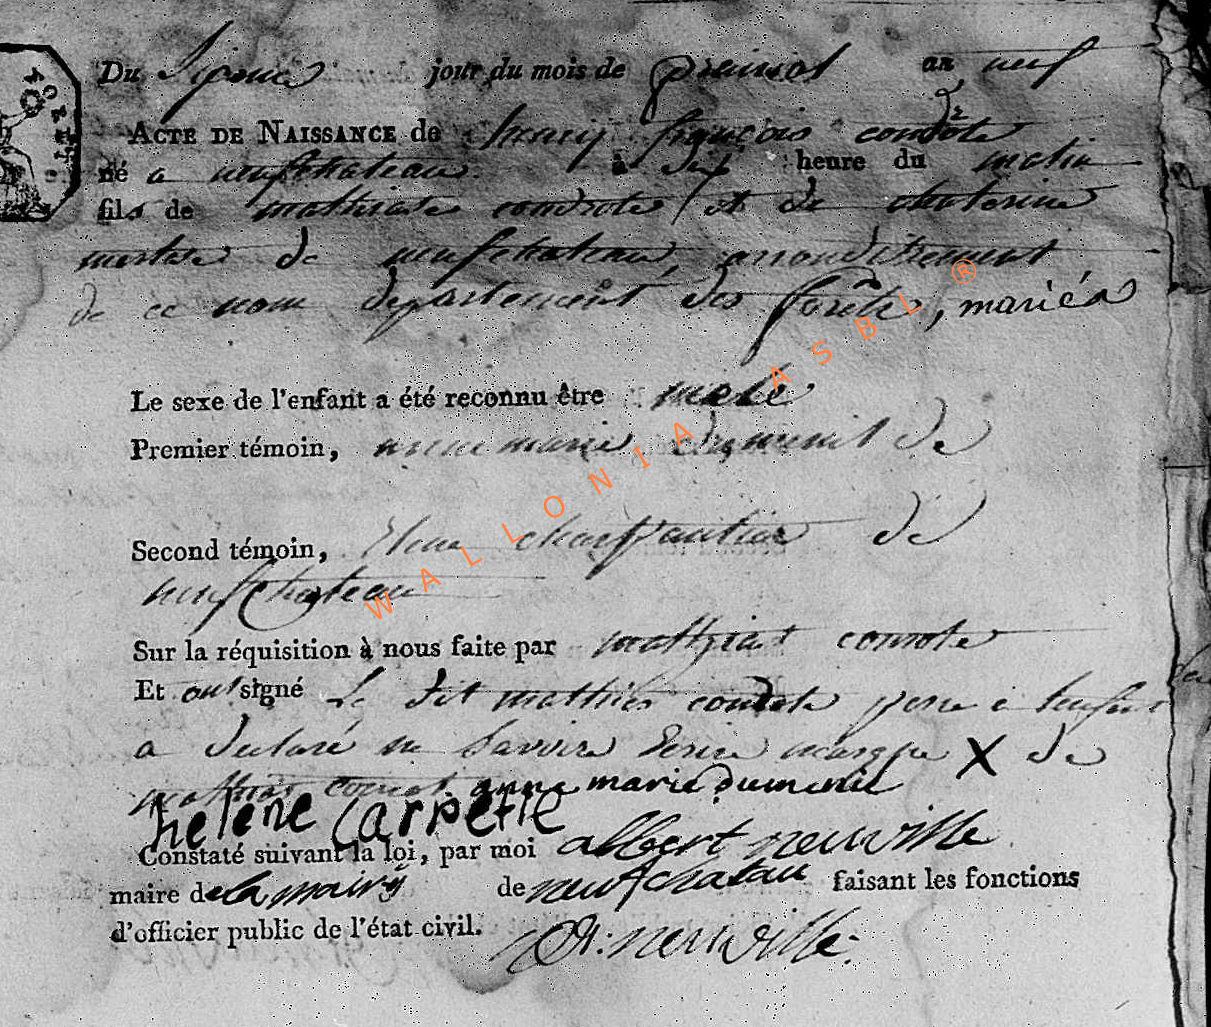 Du jour du mois de an neuf
ACTE DE NAISSANCE de henry françois condrote
né a neufchateau à six heure du matin
fils de mathiate condrote et de chaterine
de neufchateau, arrondissement
de ce nom departement des forêts, mariés
Le sexe de l'enfant a été reconnu être male
Premier témoin, anne marie dumenil de
Second témoin, Elene charpantier de
neufchateau
Sur la réquisition à nous faite par mathias conrote
Et ont signé Le dit mathies condrote pere a lenfant
a declaré ne savoire Ecrire marque X de
mathias conrot anne marie dumenil
helene Carpetie
Constaté suivant la loi, par moi albert neuville
maire de la mairy de neufchatau faisant les fonctions
d'officier public de l'état civil. A: neuville
WALLONIA ASBL ®